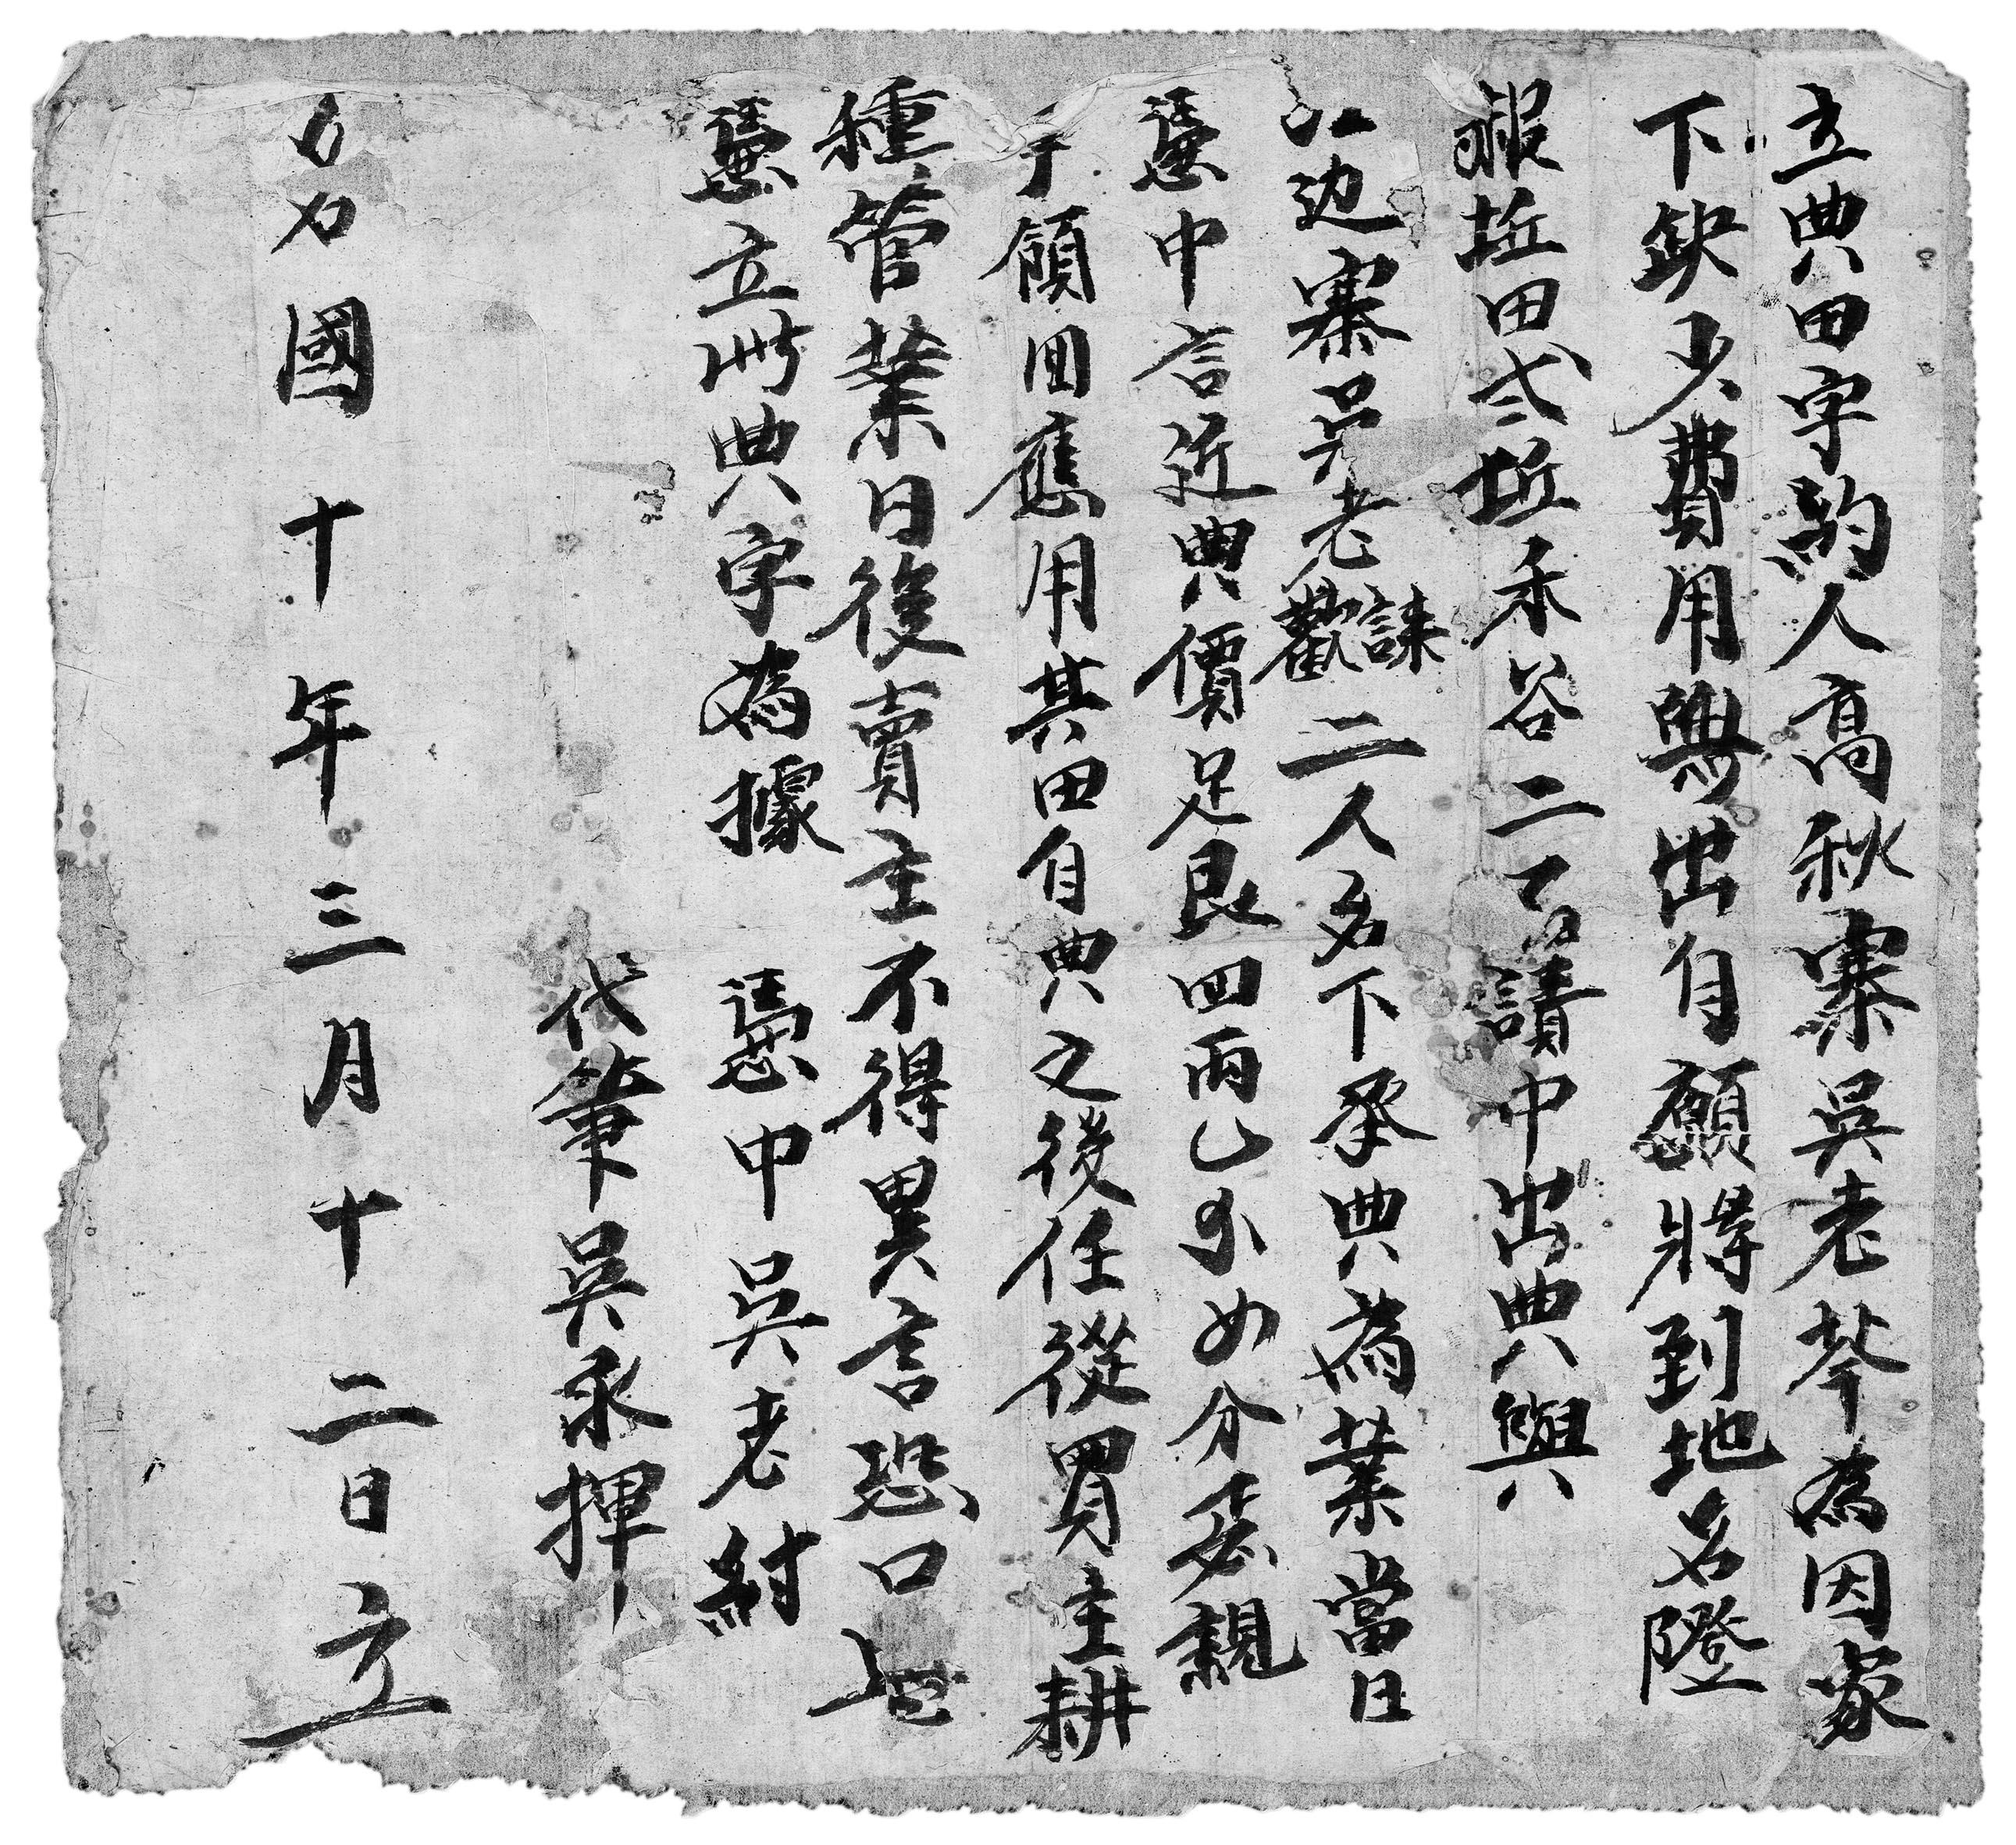 立典田字約人高秋寨吳老苓為因家
下缺少費用無出自願將到地名隥
坵田弍坵禾谷二百請中出典與
边寨吳老歡誄二人名下承典為業當日
憑中言近典價足艮四兩七分親
手領回應用其田自典之後任從買主耕
種管業日後賣主不得異言恐口無
憑立此典字為據 憑中吳老紂
代筆吳永揮
國十年三月十二日立